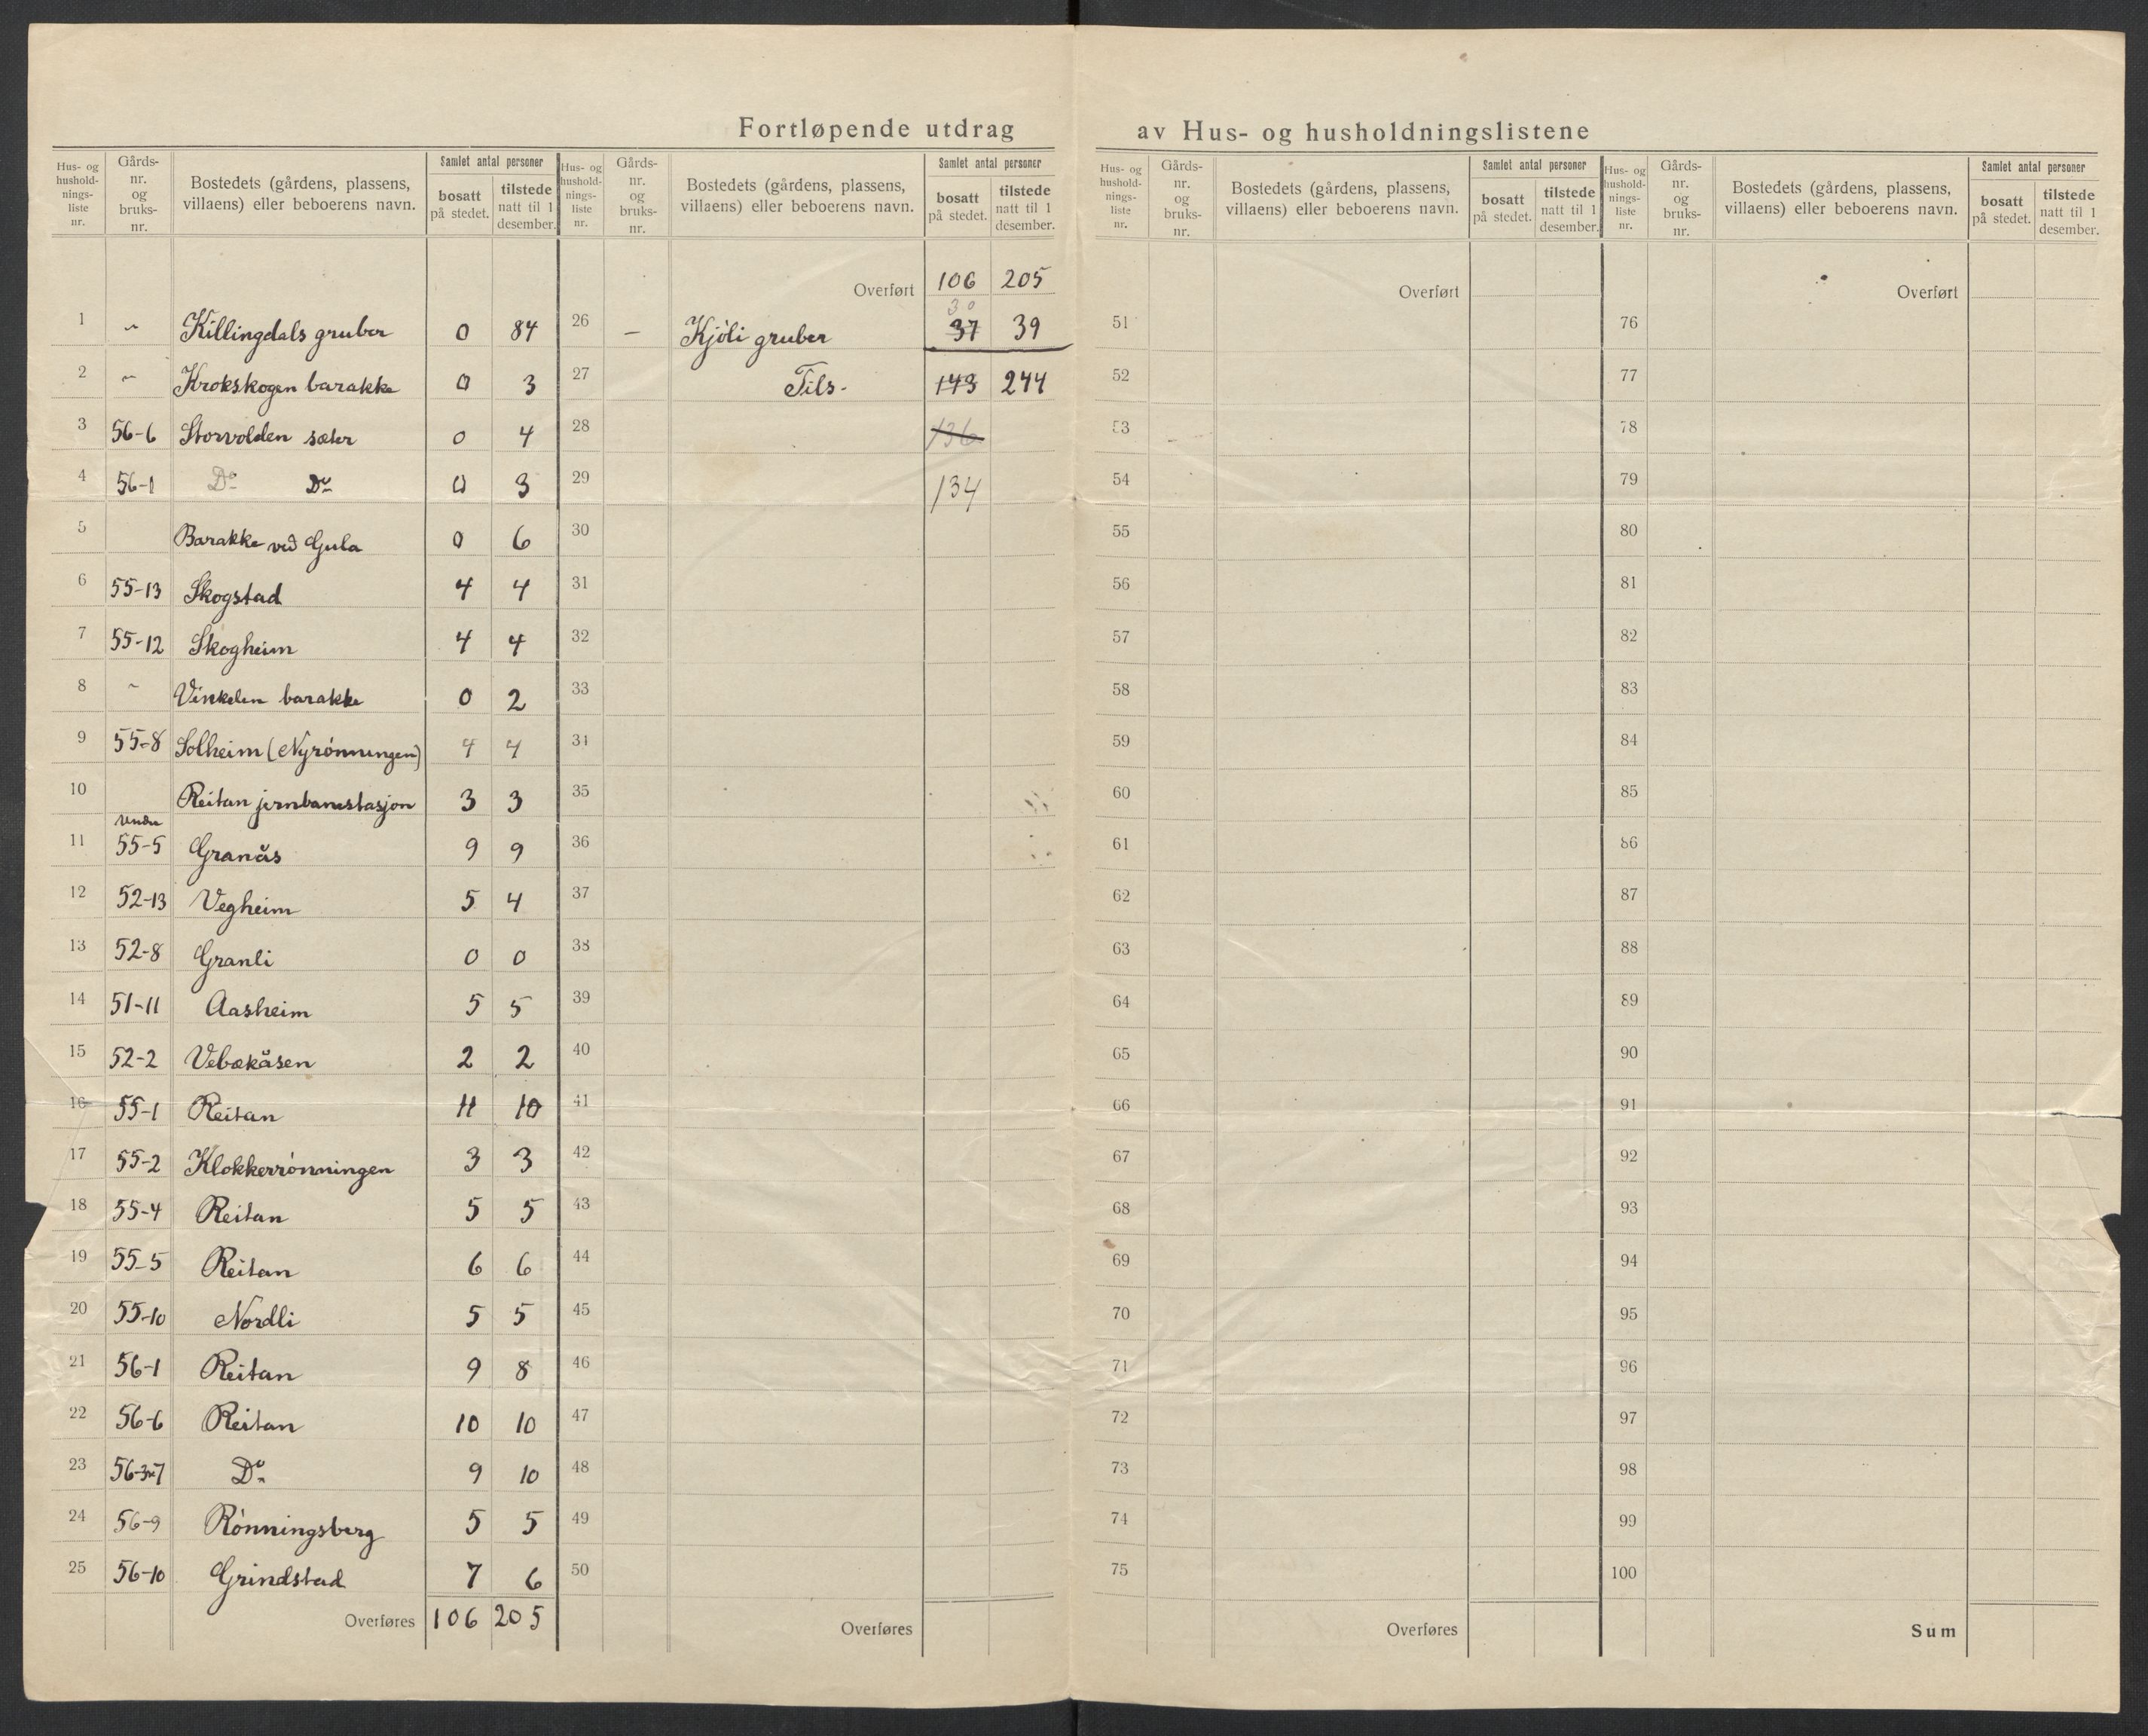 Fortløpende utdrag av Hus- og husholdningslistene
Hus- og hushold-nings-liste nr. Gårds-nr. og bruks-nr. Bostedets (gårdens, plassens, villaens) eller beboerens navn. Samlet antal personer bosatt på stedet. tilstede natt til 1 desember.
1 ~ Killingdals gruber 0 84
2 ~ Krokskogen barakke 0 3
3 56-6 Storvolden sæter 0 4
4 56-1 Do Do 0 3
5 Barakke ved Gula 0 6
6 55-13 Skogstad 4 4
7 55-12 Skogheim 4 4
8 ~ Vinkelen barakke 0 2
9 55-8 Solheim (Nyrönningen) 4 4
10 Reitan jernbanestasjon 3 3
under
11 55-5 Granås 9 9
12 52-13 Vegheim 5 4
13 52-8 Granli 0 0
14 51-11 Aasheim 5 5
15 52-2 Vebækåsen 2 2
16 55-1 Reitan 11 10
17 55-2 Klokkerrönningen 3 3
18 55-4 Reitan 5 5
19 55-5 Reitan 6 6
20 55-10 Nordli 5 5
21 56-1 Reitan 9 8
22 56-6 Reitan 10 10
23 Do 9 10
24 56-9 Rönningsberg 5 5
25 56-10 Grindstad 7 6
Overføres 106 205
Hus- og hushold-nings-liste nr. Gårds-nr. og bruks-nr. Bostedets (gårdens, plassens, villaens) eller beboerens navn. Samlet antal personer bosatt på stedet. tilstede natt til 1 desember.
Overført 106 205
30
26 – Kjöli gruber 37 39
27 Tils- 143 244
28 136
29 134
30
31
32
33
34
35
36
37
38
39
40
41
42
43
44
45
46
47
48
49
50
Overføres
Hus- og hushold-nings-liste nr. Gårds-nr. og bruks-nr. Bostedets (gårdens, plassens, villaens) eller beboerens navn. Samlet antal personer bosatt på stedet. tilstede natt til 1 desember.
Overført
51
52
53
54
55
56
57
58
59
60
61
62
63
64
65
66
67
68
69
70
71
72
73
74
75
Overføres
Hus- og hushold-nings-liste nr. Gårds-nr. og bruks-nr. Bostedets (gårdens, plassens, villaens) eller beboerens navn. Samlet antal personer bosatt på stedet. tilstede natt til 1 desember.
Overført
76
77
78
79
80
81
82
83
84
85
86
87
88
89
90
91
92
93
94
95
96
97
98
99
100
Sum